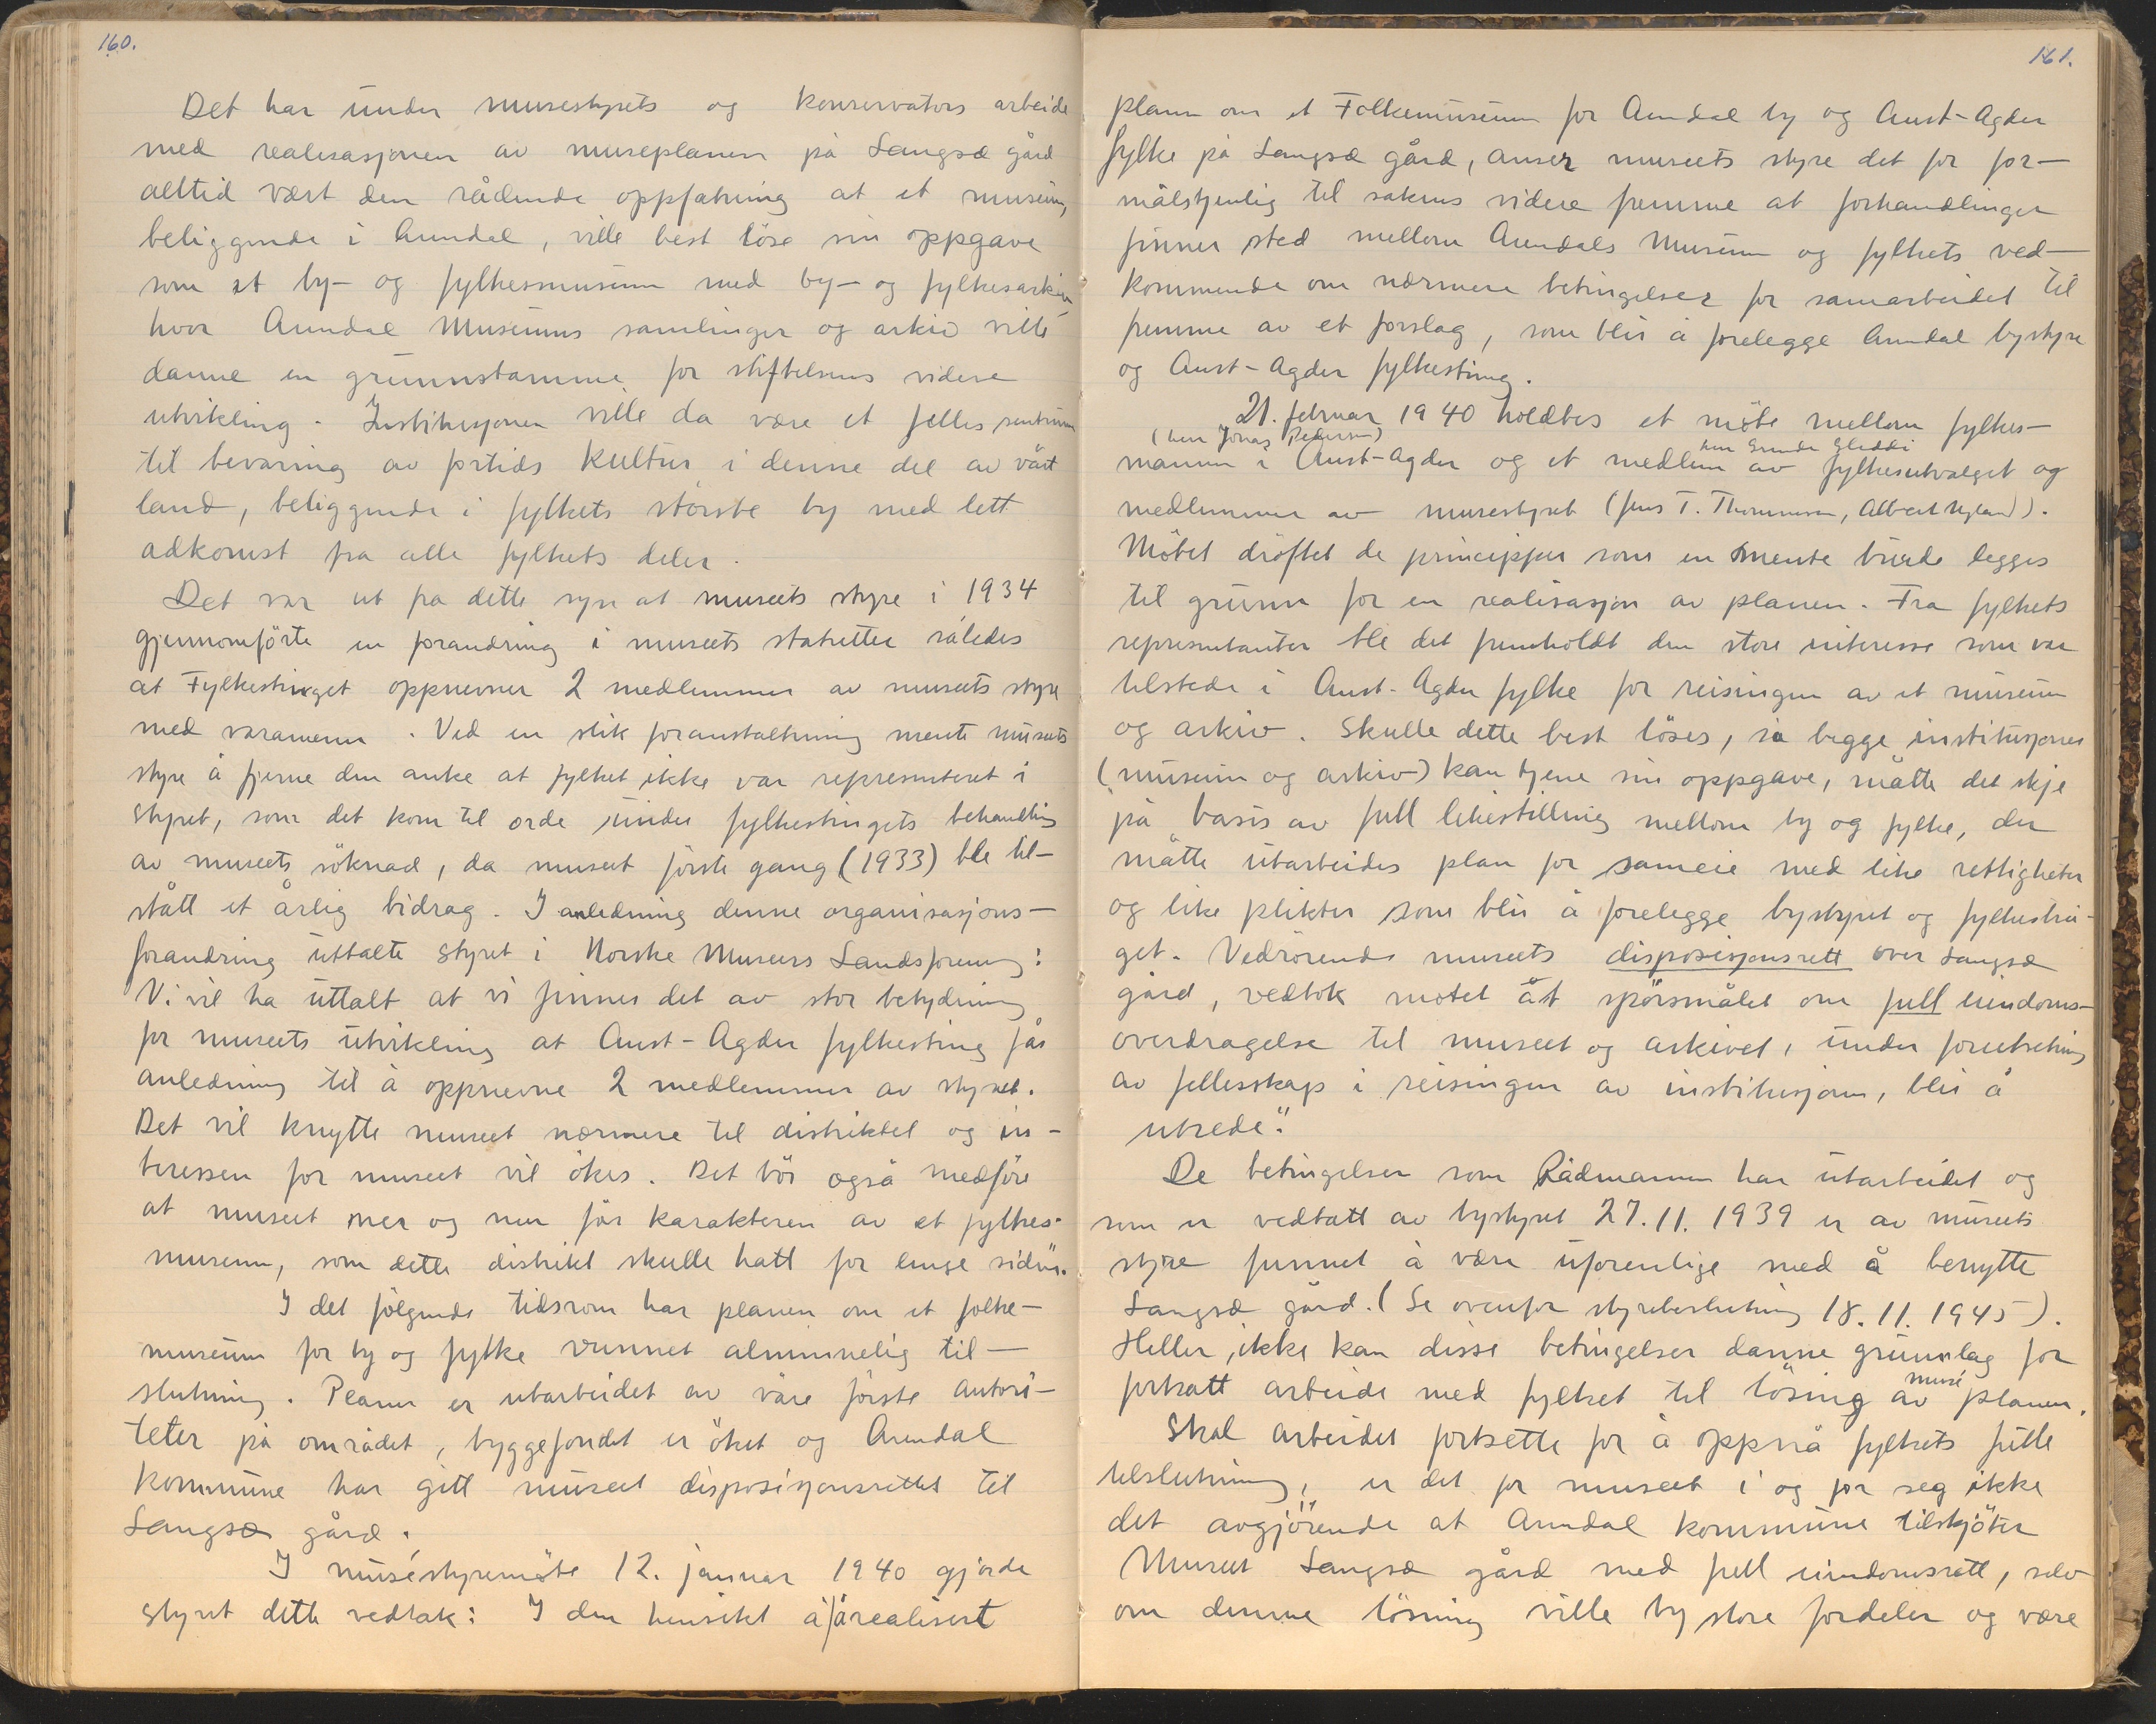 160.
Det har under musestyrets og konservators arbeide
med realisasjonen av museplanen på Langsæ gård
alltid vært den rådende oppfatning at et museum,
beliggende i Arendal, ville best löse sin oppgave
som et by- og fylkesmuseum med by- og fylkesarkiv
hvor Arendal Museums samlinger og arkiv ville
danne en grunnstamme for stiftelsens videre
utvikling. Institusjonen ville da være et felles sentrum
til bevaring av fortids kultur i denne del av vårt
land, beliggende i fylkets störste by med lett
adkomst fra alle fylkets deler.
Det var ut fra dette syn at museets styre i 1934
gjennomförte en forandring i museets statutter således
at Fylkestinget oppnevner 2 medlemmer av museets styre
med varamenn. Ved en slik foranstaltning mente museets
styre å fjerne den anke at fylket ikke var representeret i
styret, som det kom til orde under fylkestingets behandling
av museets söknad, da museet förste gang (1933) ble til-
stått et årlig bidrag. I anledning denne organisasjons-
forandring uttalte styret i Norske Museers Landsforening:
Vi vil ha uttalt at vi finner det av stor betydning
for museets utvikling at Aust-Agder fylkesting får
anledning til å oppnevne 2 medlemmer av styret.
Det vil knytte museet nærmere til distriktet og in-
teressen for museet vil ökes. Det bör også medföre
at museet mer og mer får karakteren av et fylkes-
museum, som dette distrikt skulle hatt for lenge siden".
I det fölgende tidsrom har planen om et folke-
museum for by og fylke vunnet alminnelig til-
slutning. Planer er utarbeidet av våre förste autori-
teter på området, byggefondet er öket og Arendal
kommune har gitt museet disposisjonsrettet til
Langsæ gård.
I muséstyremöte 12. januar 1940 gjorde
styret dette vedtak: I den hensikt å å realisert
161.
planen om et Folkemuseum for Arendal by og Aust-Agder
fylke på Langsæ gård, anser museets styre det for for-
målstjenlig til sakens videre fremme at forhandlinger
finner sted mellom Arendals Museum og fylkets ved-
kommende om nærmere betingelser for samarbeidet til
fremme av et forslag, som blir å forelegge Arendal bystyre
og Aust-Agder fylkesting.
21. februar 1940 holdtes et möte mellom fylkes-
(herr Jonas Pedersen) herr Gunde Gleddi
mannen i Aust-Agder og et medlem av fylkesutvalget og
medlemmer av musestyret (Jens T. Thommesen, Albert Nyland).
Mötet dröftet de principper som en mente burde legges
til grunn for en realisasjon av planen. Fra fylkets
representanter ble det fremholdt den store interesse som var
tilstede i Aust-Agder fylke for reisingen av et museum
og arkiv. Skulle dette best löses, så begge institusjoner
(museum og arkiv) kan tjene sin oppgave, måtte det skje
på basis av full likestilling mellom by og fylke, der
måtte utarbeides plan for sameie med like rettigheter
og like plikter som blir å forelegge bystyret og fylkestin-
get. Vedrörende museets disposisjonsrett over Langsæ
gård, vedtok mötet åt spörsmålet om full eiendoms-
overdragelse til museet og arkivet, under forutsetning
av fellesskap i reisingen av institusjonen, blir å
utrede."
De betingelser som Rådmannen har utarbeidet og
som er vedtatt av bystyret 27.11.1939 er av museets
styre funnet å være uforenlige med å benytte
Langsæ gård. (Se ovenfor styrebeslutning 18.11.1945).
Heller ikke kan disse betingelser danne grunnlag for
fortsatt arbeide med fylket til lösing av musé planen.
Skal arbeidet fortsette for å oppnå fylkets fulle
tilslutning, er det for museet i og for seg ikke
det avgjörende at Arendal kommune tilskjöter
Museet Langsæ gård med full eiendomsrett, selv
om denne lösning ville by store fordeler og være